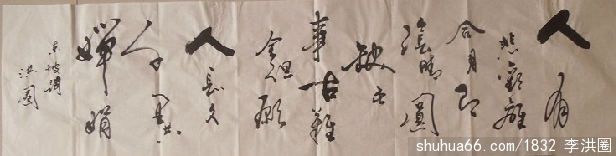 人有
悲欢離
合月有
陰晴圓
缺此
事古難
全但願
人長久
千里共
嬋娟
東坡詞
洪圈
shuhua66.com/1832 李洪圈